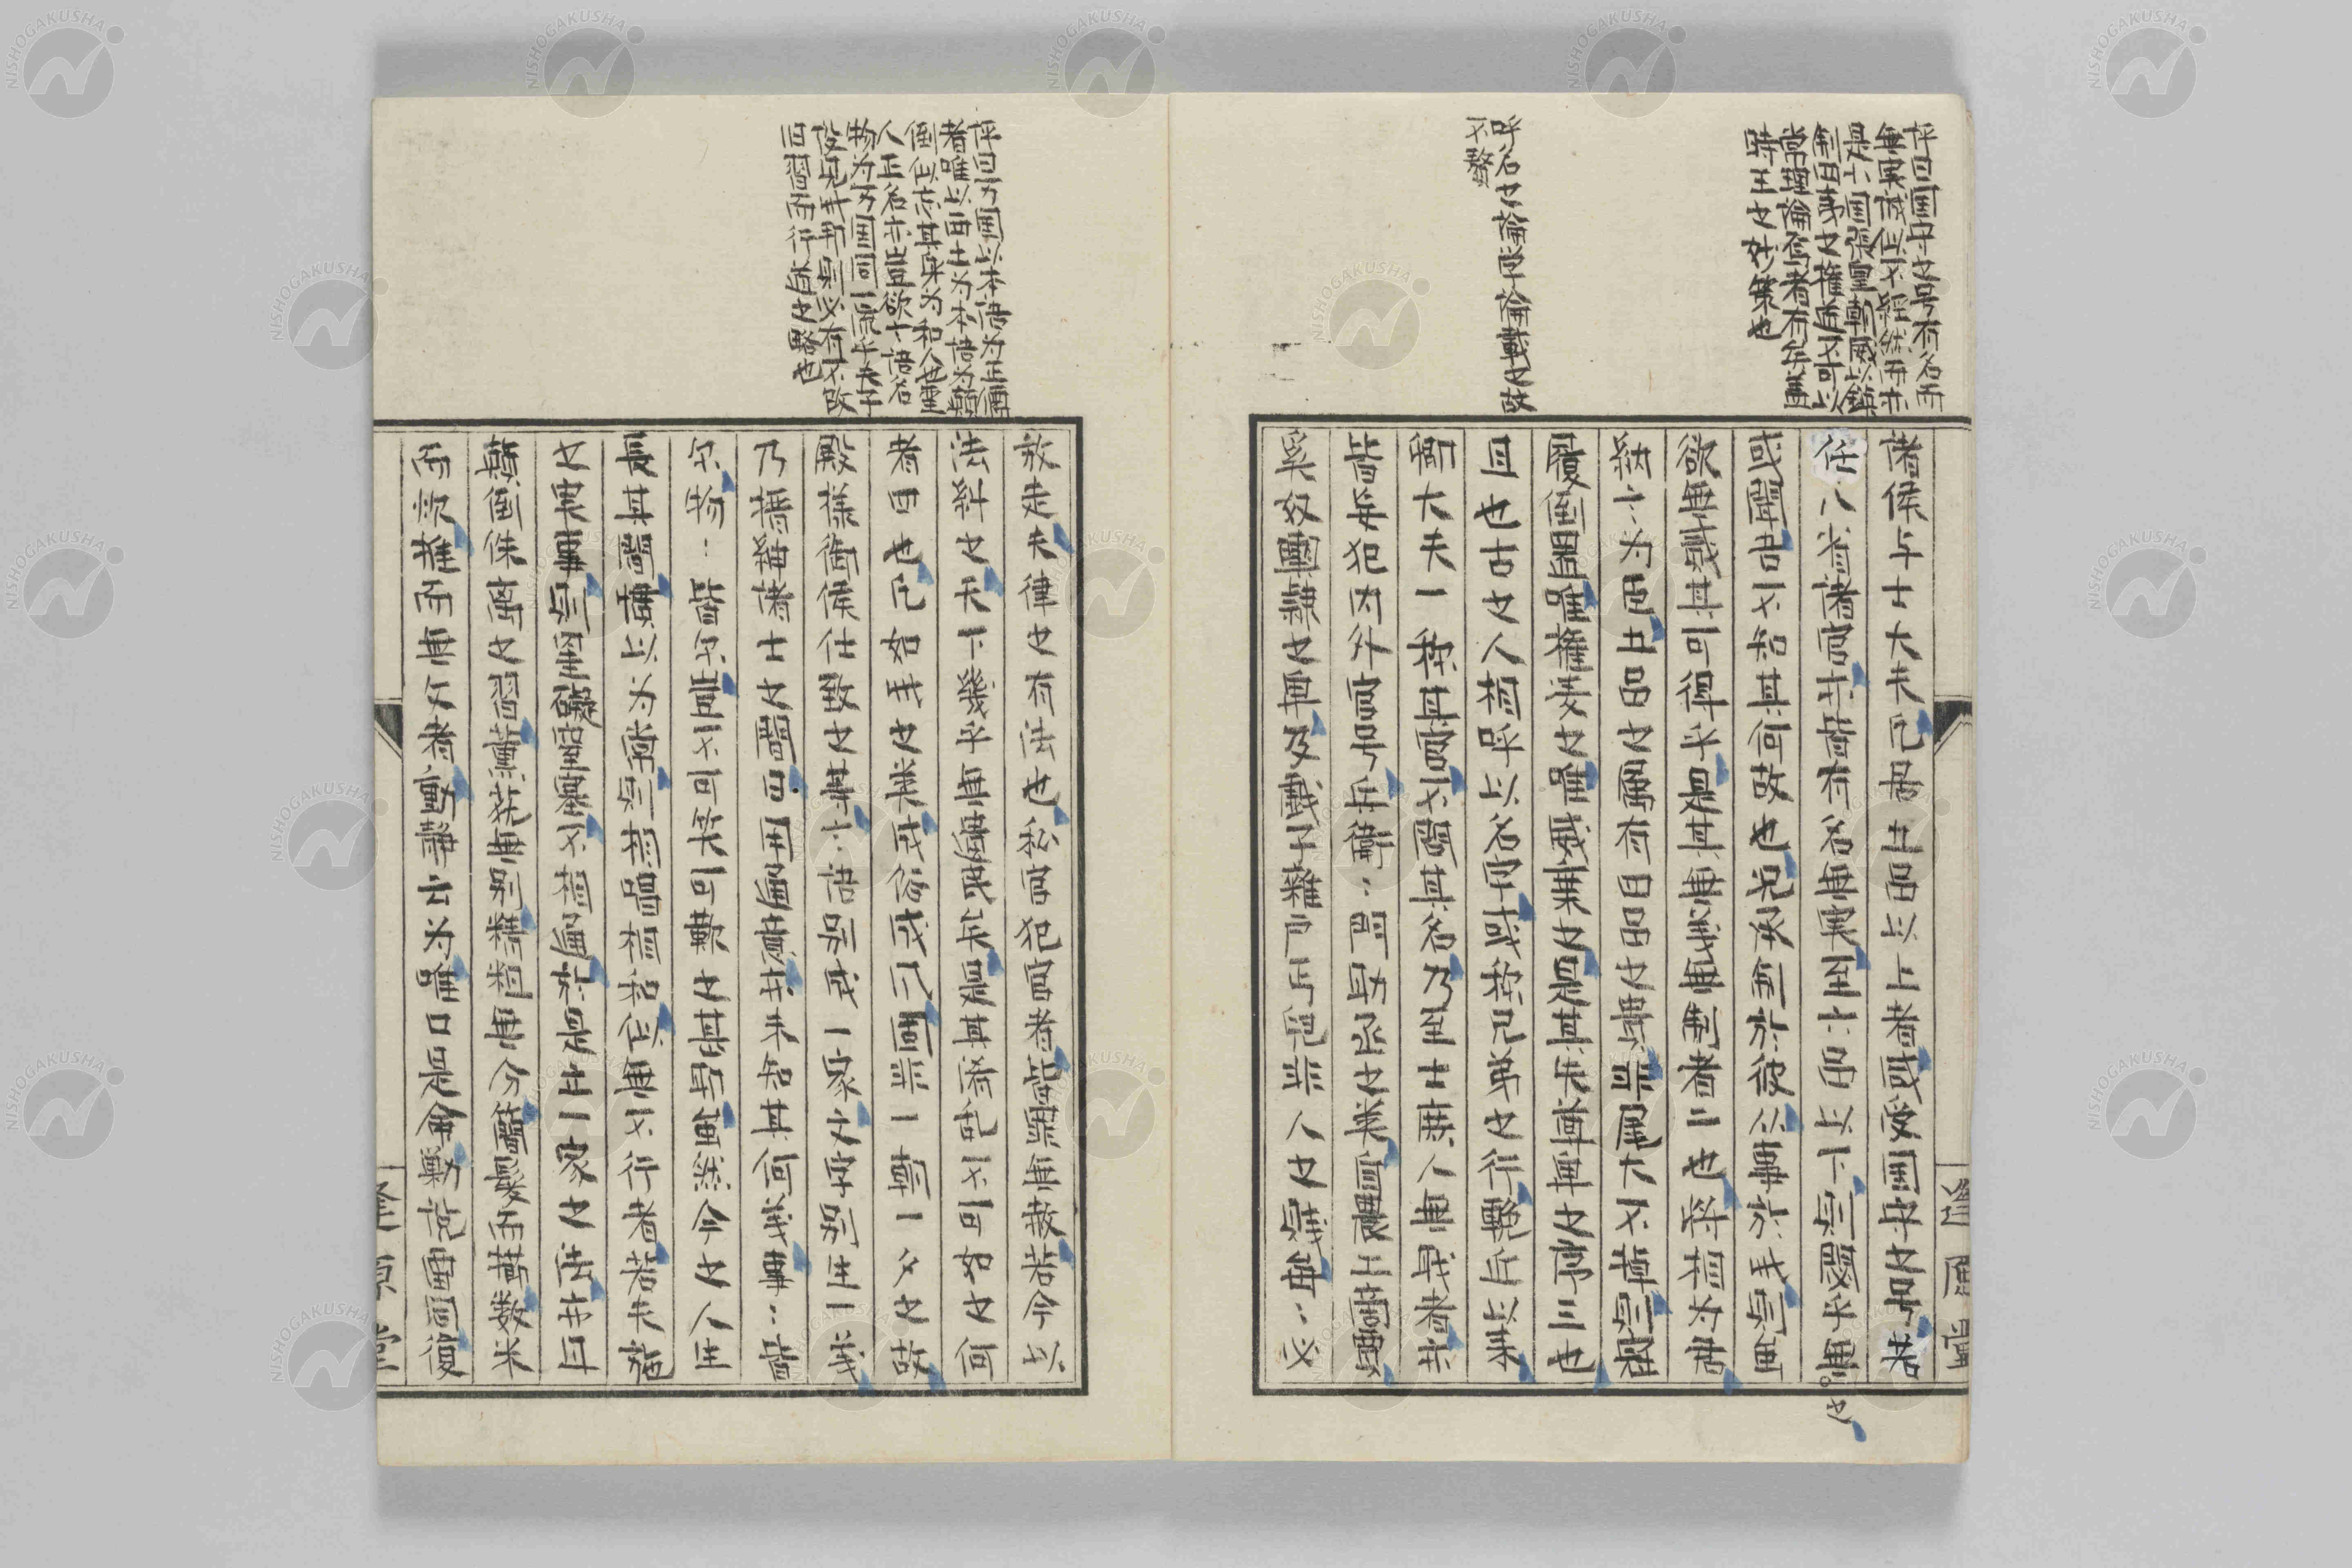 評曰国守之号有名而
無実誠似不経然而亦
是六国張皇朝威以鎮
制田彧之権道不可以
常理論焉者有乐畫
時王之妙策也
諸侯与士大夫已是五品以上者或受国守之号若
任八省諸官亦皆有名無実至六品以下則闕乎無之也
或聞告不知其何故也兄承制於彼公事於我則再
欲無惑其可得乎是其無義無制者二也将相为君
納言为臣五品之属有四品之貴罪冠大不得則君
履倒置唯権凌之唯威乗之是其失尊卑之序三也
且也古之人相呼以名字或称兄弟之行輓近以来
卿大夫一称其官不問其名乃至士庶人無職者亦
皆妄犯内外官号兵衛門助丞之類自農工商賈
奚奴輿隷之卑及戯子雜戸与児非人之賤每必
呼名之論単論戴之故
不贅
放走夫律之有法也私官犯官者當罪無赦若今以
法糾之天下幾乎無遺民矣是其淆乱不可如之何
者四也已如我之業或俗或不同業一朝一夕之故
殿樣御侯仕致之其言語別或一家文字別出一義
乃搢紳諸士之間日用通患亦未知其何義事皆
尓物皆尓豈不可笑可歎之甚乎雖然今之人生
長其間講以为常則相唱相和似無不行者若夫施
之実事則窒礙壅塞不相通於是出一家之法亦且
顛倒侏離之習薰蕕無別精粗無分簡髮而櫛数米
而炊雖而無欠者動静云为唯口是命勦説雷同復
評曰万国以本語为正傳
者唯以再士为本語为顛
倒似忘其身为和人也聖
人正名亦豈欲言語名
物为万国同一風乎夫子
復見我邦則必有不改
旧習而行道之路也
逢原堂